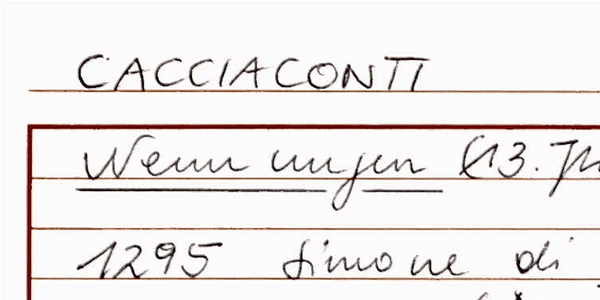 CACCIACONTI
Nennungen (13. Jh
1295 Simone di